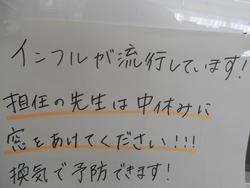 インフルが流行しています!
担任の先生は中休みに
窓をあけてください!!!
換気で予防できます!